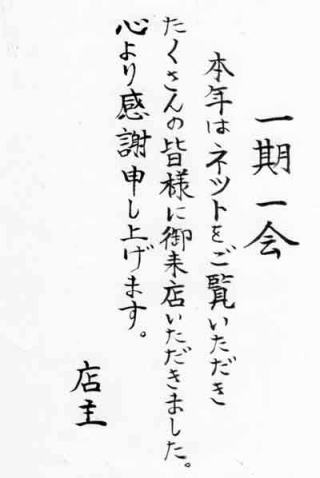 一期一会
本年はネットをご覧いただき
たくさんの皆様に御来店いただきました。
心より感謝申し上げます。
店主